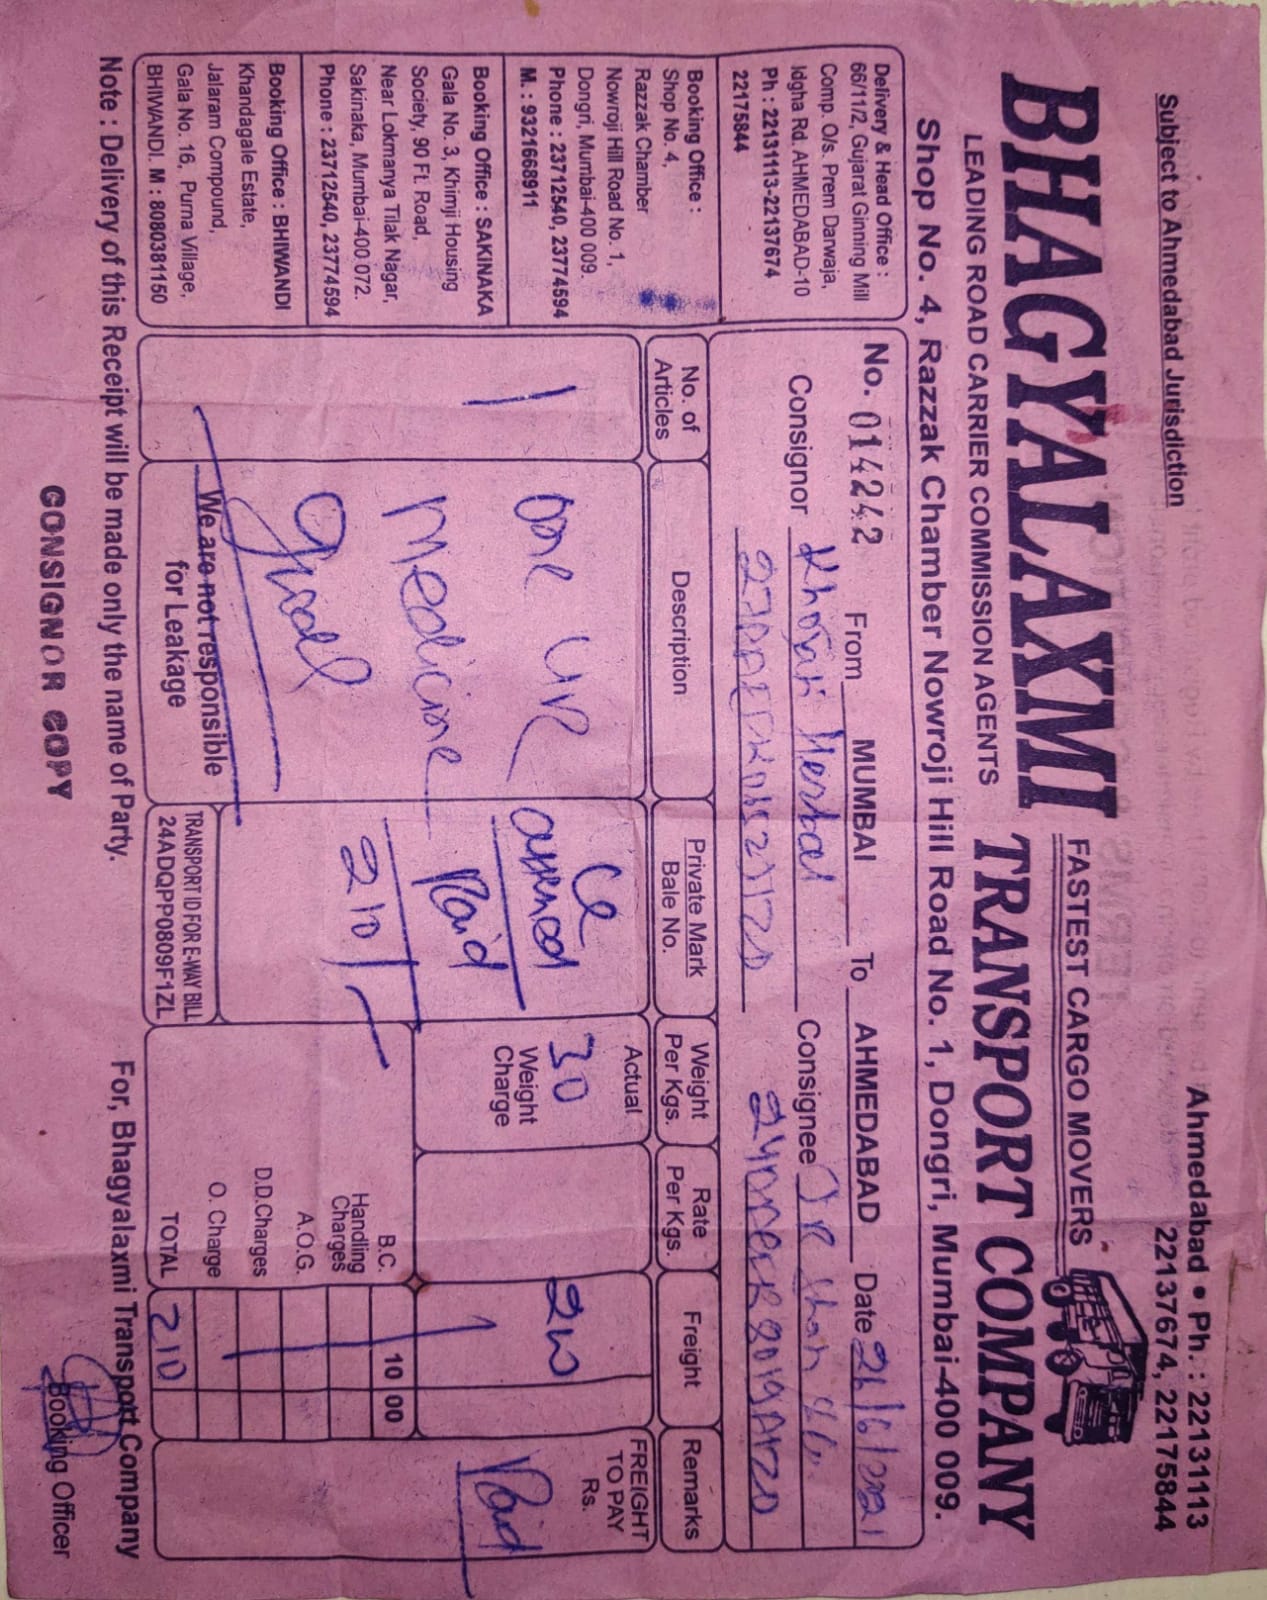 Subject to Ahmedabad Jurisdiction
Ahmedabad • Ph.: 22131113
22137674, 22175844
FASTEST CARGO MOVERS
BHAGYALAXMI TRANSPORT COMPANY
LEADING ROAD CARRIER COMMISSION AGENTS
Shop No. 4, Razzak Chamber Nowroji Hill Road No. 1, Dongri, Mumbai-400 009.
Delivery & Head Office :
66/11/2, Gujarat Ginning Mill
Comp. O/s. Prem Darwaja,
Idgha Rd. AHMEDABAD-10
Ph : 22131113-22137674
22175844
Booking Office :
Shop No. 4,
Razzak Chamber
Nowroji Hill Road No. 1,
Dongri, Mumbai-400 009.
Phone : 23712540, 23774594
M. : 9321668911
Booking Office : SAKINAKA
Gala No. 3, Khimji Housing
Society, 90 Ft. Road,
Near Lokmanya Tilak Nagar,
Sakinaka, Mumbai-400 072.
Phone : 23712540, 23774594
Booking Office : BHIWANDI
Khandagale Estate,
Jalaram Compound,
Gala No. 16, Purna Village,
BHIWANDI. M : 8080381150
No. 014242 From MUMBAI To AHMEDABAD Date
Consignor Consignee
No. of Articles Description Private Mark Bale No. Weight Per Kgs. Rate Per Kgs. Freight Remarks
1 one Actual 30 FREIGHT TO PAY Rs.
Weight Charge
Medicine Paid Paid
Good 210/
B.C. 10 00
Handling Charges
A.O.G.
D.D.Charges
O. Charge
TOTAL 210
We are not responsible
for Leakage
TRANSPORT ID FOR E-WAY BILL
24ADQPP0809F1ZL
Note : Delivery of this Receipt will be made only the name of Party.
For, Bhagyalaxmi Transport Company
CONSIGNOR COPY
Booking Officer